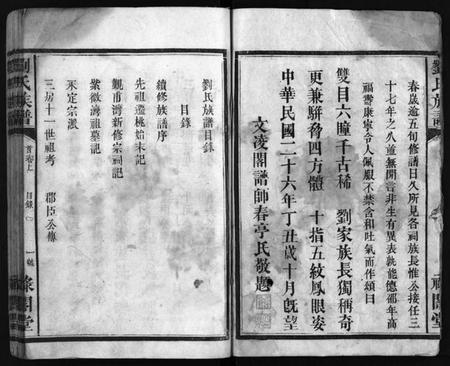 劉氏族譜
春歲逾五旬修譜日久所見各祠族長惟公接任三
十七年之久並無閒言非生有異表孰能德邵年高
福壽康寧令人佩服不禁含和吐氣而作頌曰
雙目六瞳千古稀 劉家族長獨稱奇
更兼駢脅四方體 十指五紋鳳眼姿
中華民國二十六年丁丑歲十月旣望
文淩閣譜師春亭氏敬題
劉氏族譜目錄
目錄
續修族譜序
先祖遷桃始末記
觀甫灣新修宗祠記
紫微灣祖墓記
永定宗派
三房十一世祖考 郡臣公傳
劉氏族譜
首卷上
目錄
一號
祿閣堂